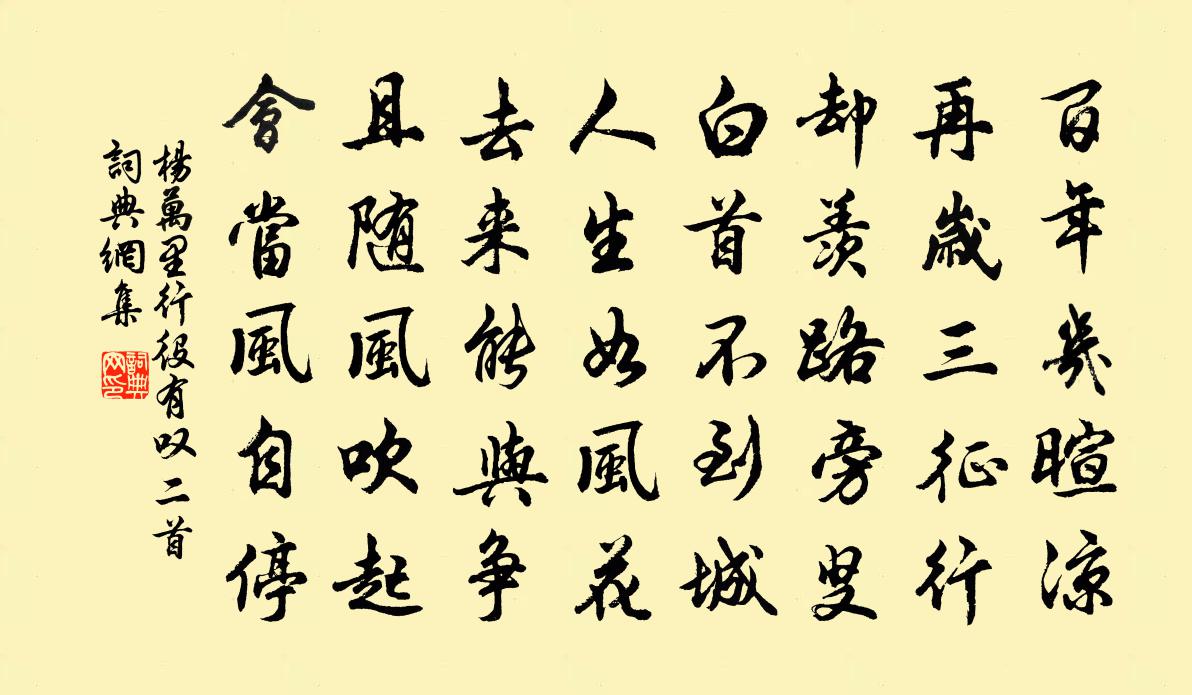 百年幾暄涼
再歲三征行
却羨路旁叟
白首不到城
人生如風花
去来能與争
且随風吹起
會當風自停
楊萬里行役有叹二首
詞典網集
詞典
网印